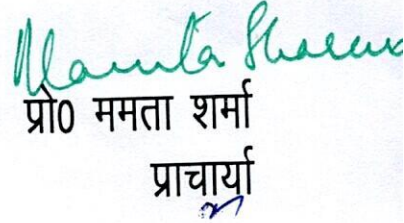 Mamta Sharma
प्रो0 ममता शर्मा
प्राचार्या